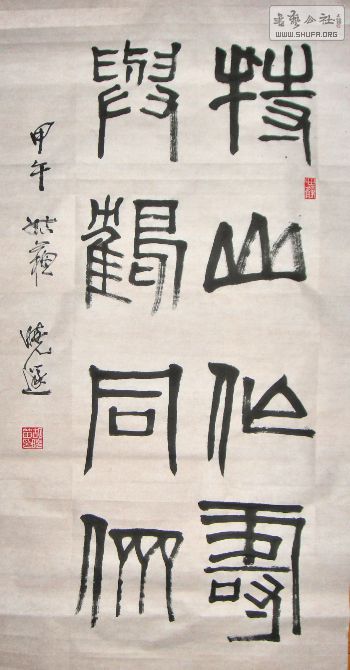 書藝公社
WWW.SHUFA.ORG
持山作壽
與鶴同
甲午 姑蘇